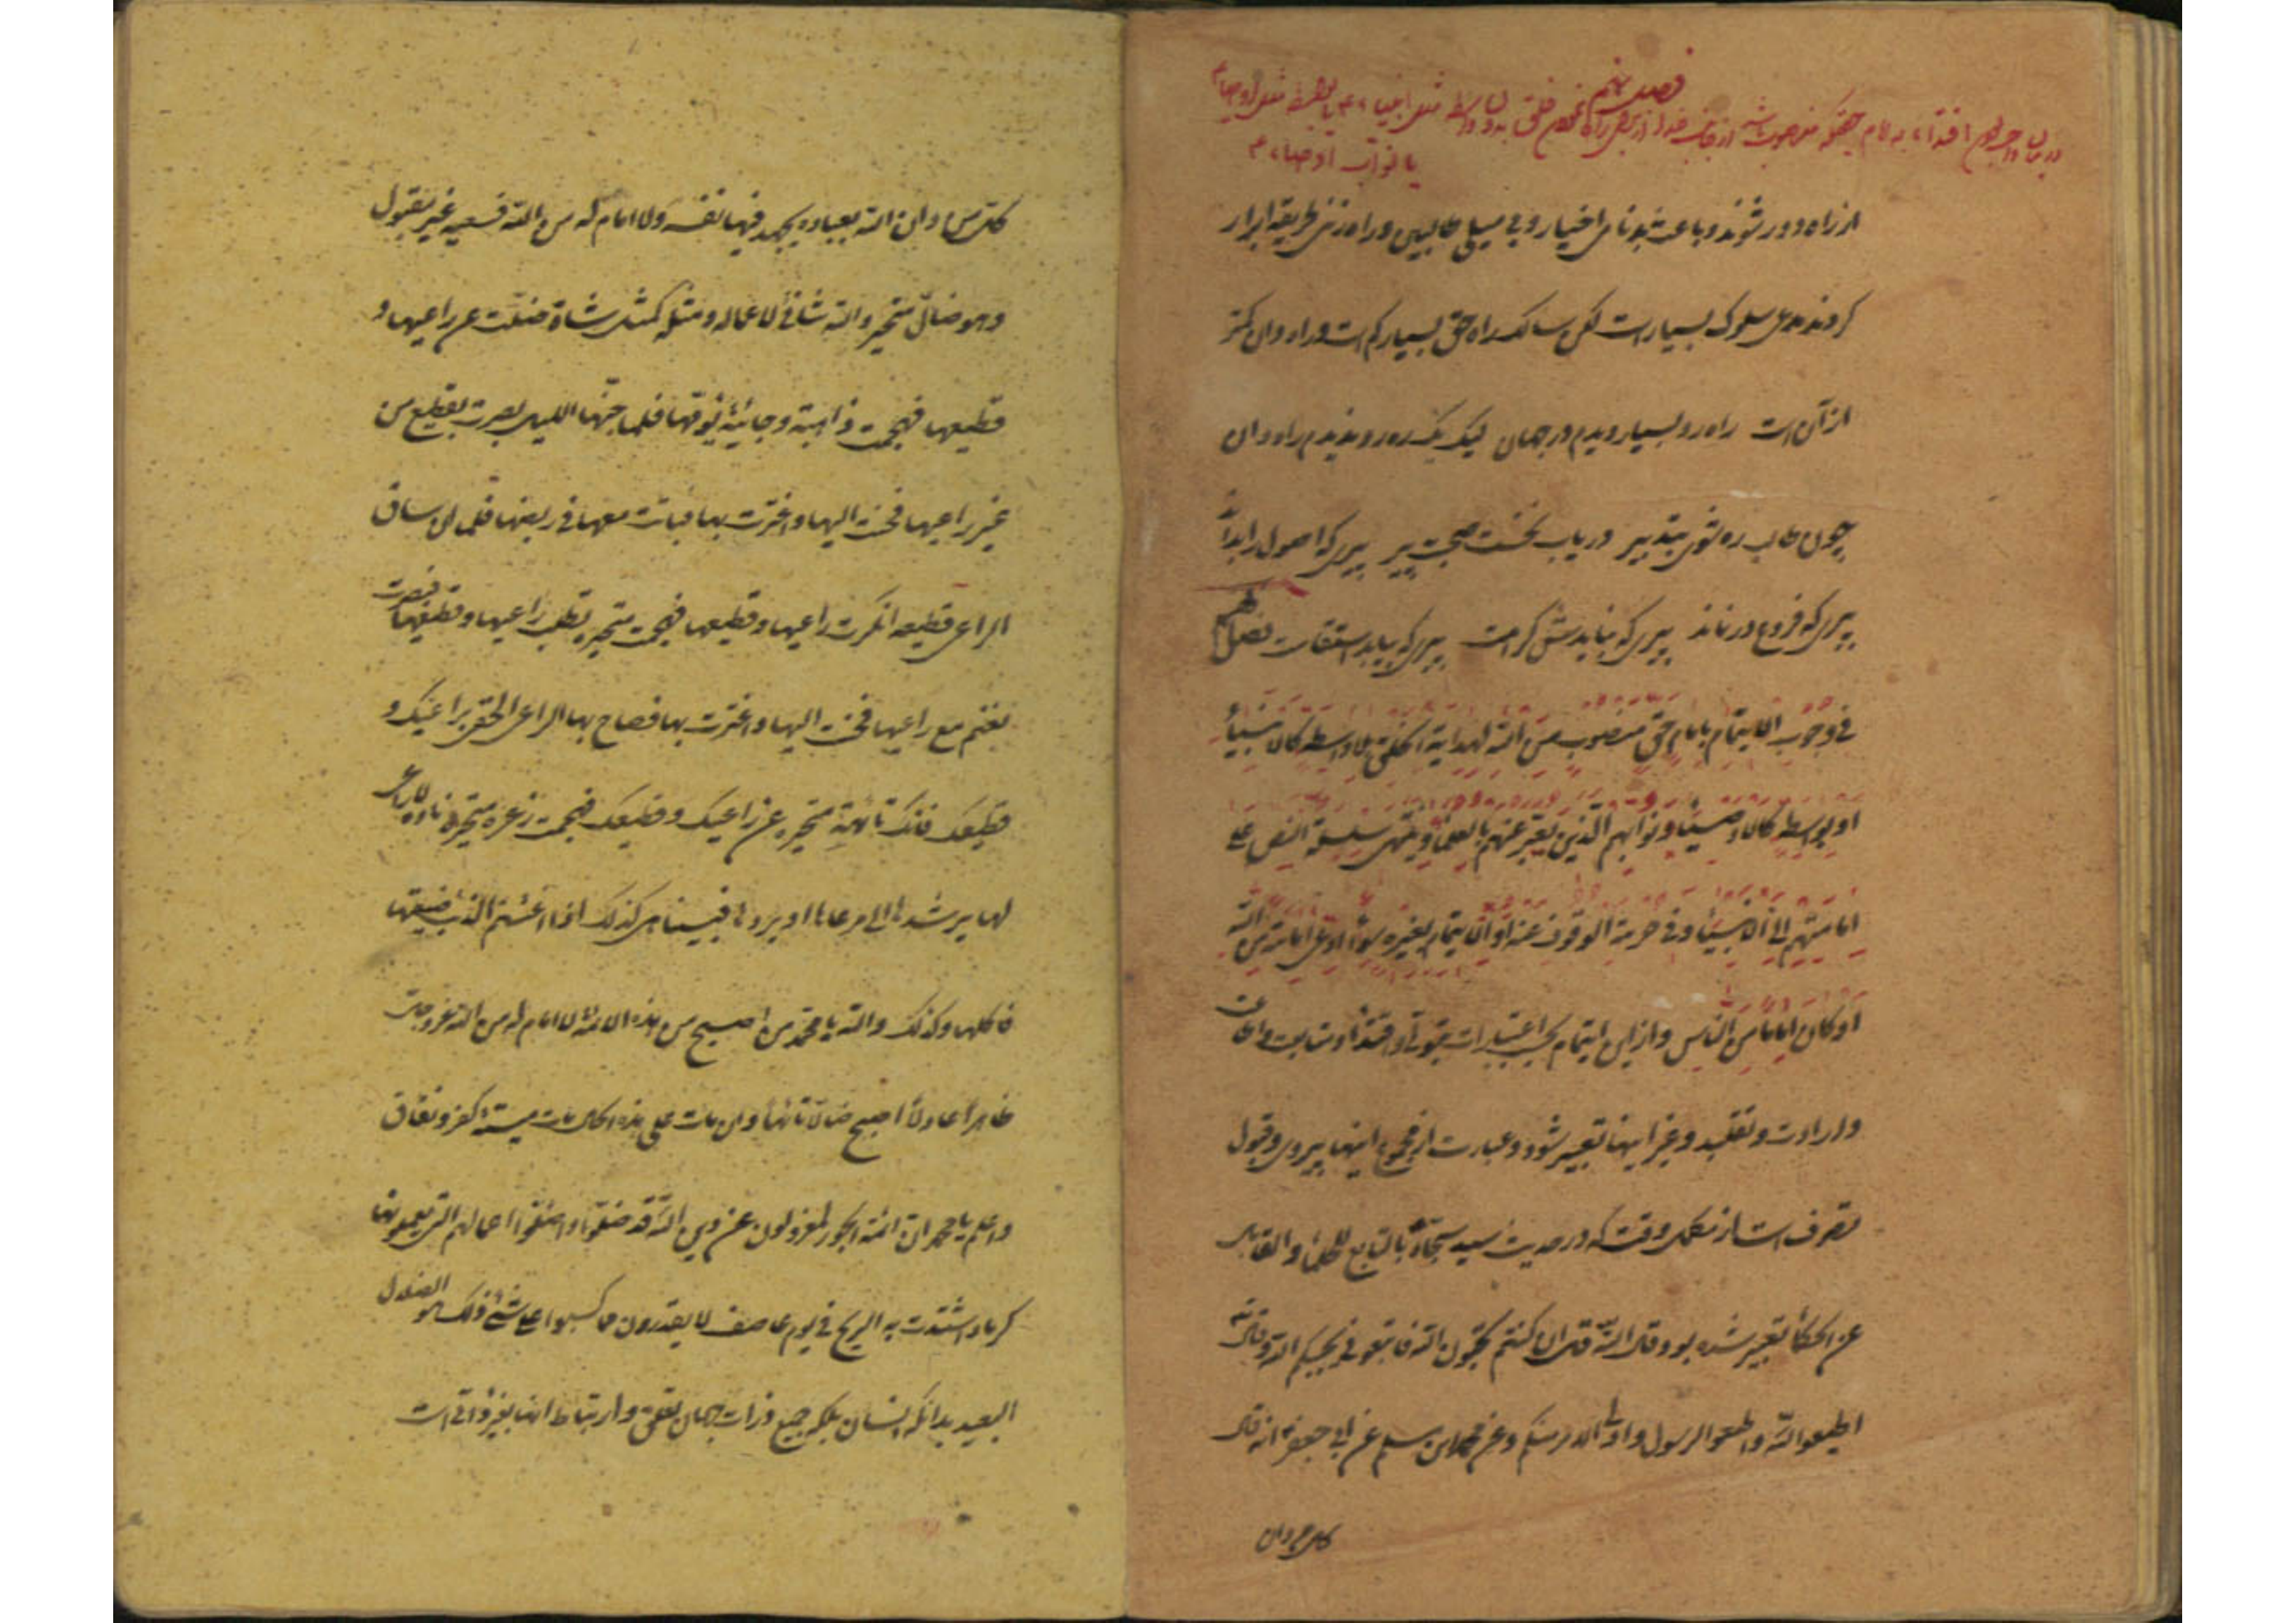 فصل پنجم
در بیان واجب بودن اقتداء به امام حق که منصوب باشد از جانب خدا از برای راه نمودن خلق بدون واسطه مثل انبیاء ع یا بواسطه مثل اوصیاء ع
یا نواب اوصیاء ع
از راه دور شوند و باعث بدنامی اخیار و بی میلی طالبین و راه زنی طریقه ابرار
کردند مدعی سلوک بسیار است لکن سالک راه حق بسیار کم است و راه دان کمتر
از آن است راه رو بسیار دیدم در جهان لیک یک ره رو ندیدم راه دان
چون طالب ره شوی بتدبیر دریاب نخست صحبت پیر پیری که اصول را بداند
پیری که فروع در نماند پیری که نیایدش کرامت پیری که بیابد استقامت فصل پنجم
فی وجوب الایتمام بامام حق منصوب من الله لهدایة الخلق بلا واسطه کالانبیاء
او بواسطه کالاوصیاء و نوابهم الذین یعبر عنهم بالعلماء و ینتهی سلسلة النص علی
امامتهم الی الانبیاء و فی حرمة الوقوف عنه او الایتمام بغیره سواء ادعی امامة من الله
او کان اماما من الناس و از این ایتمام بحسب اعتبارات بتولی و اقتداء و متابعت و اطاعت
و ارادت و تقلید و غیر اینها تعبیر شود و عبارت از مجموع اینها پیروی و قبول
تصرف است از متکمل وقت که در حدیث سید سجاد ع بالتابع للحلماء و القابل
عن الحکماء تعبیر شده بود و قال الله قل ان کنتم تحبون الله فاتبعونی یحببکم الله و قال الله
اطیعوا الله و اطیعوا الرسول و اولی الامر منکم و عن محمد ابن مسلم عن ابی جعفر ع انه قال
کل من دان
کل من دان الله بعباده یجهد فیها نفسه و لا امام له من الله فسعیه غیر مقبول
و هو ضال متحیر و الله شانئ لاعماله و مثله کمثل شاة ضلت عن راعیها و
قطیعها فهجمت ذاهبة و جائیة یومها فلما جنها اللیل بصرت بقطیع من
غیر راعیها فحنت الیها و اغترت بها فباتت معها فی ربضها فلما ان ساق
الراعی قطیعه انکرت راعیها و قطیعها فهجمت متحیرة تطلب راعیها و قطیعها فبصرت
بغنم مع راعیها فحنت الیها و اغترت بها فصاح بها الراعی الحقی براعیک و
قطیعک فانک تائهة متحیرة عن راعیک و قطیعک فهجمت ذعرة متحیرة نادة لا راعی
لها یرشدها الی مرعاها او یردها فبینا هی کذلک اذا اغتنم الذئب ضیعتها
فاکلها و کذلک والله یا محمد من اصبح من هذه الائمة لا امام له من الله عز و جل
ظاهرا عادلا اصبح ضالا تائها و ان مات علی هذه الحال مات میتة کفر و نفاق
و اعلم یا محمد ان ائمة الجور لمعزولون عن دین الله قد ضلوا و اضلوا اعمالهم التی یعملونها
کرماد اشتدت به الریح فی یوم عاصف لا یقدرون مما کسبوا علی شئ ذلک هو الضلال
البعید بدانکه انسان بلکه جمیع ذرات جهان تعلق و ارتباط آنها بغیر ذاتی است